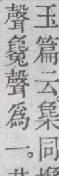 玉篇云㲋同
聲毚聲爲一。